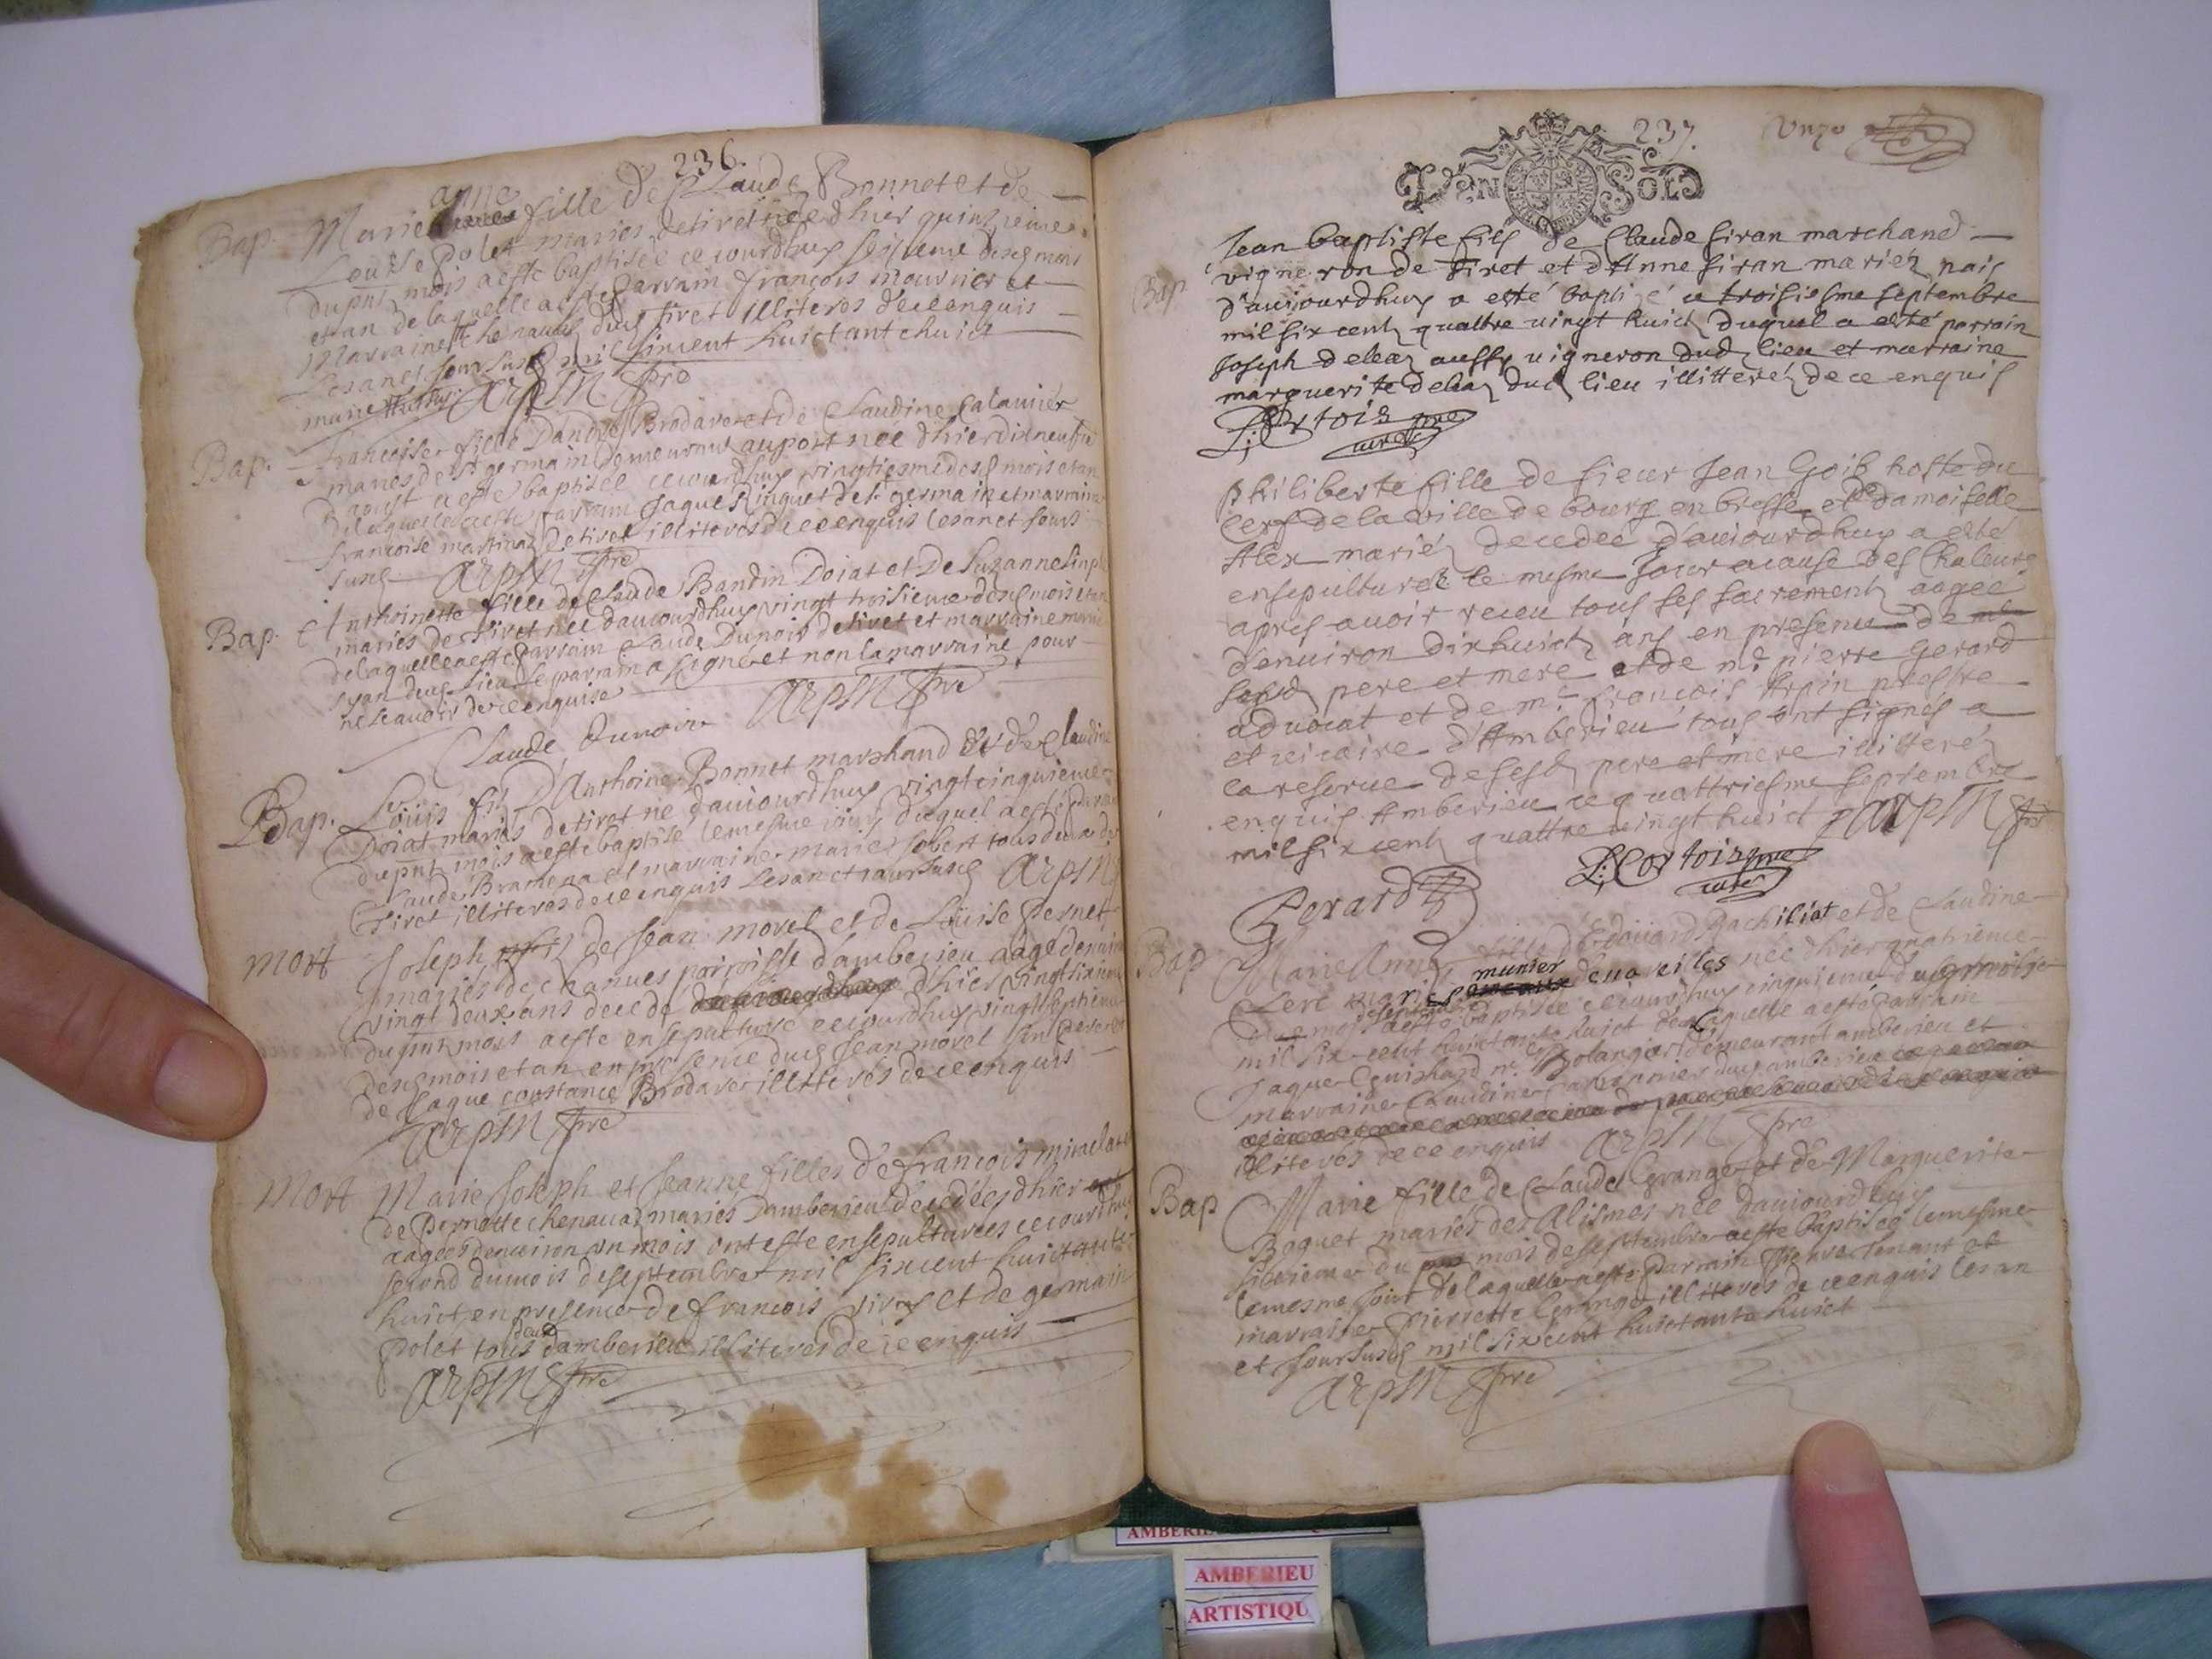 236.
anne
Bap. Marie fille de Claude Bonnet et de
Louise polet mariés de tiret née d'hier quinzieme
du pnt mois a esté baptisée ce iourdhuy seizieme desd mois
et an de laquelle a esté parrain françois mouvrier et
Marraine chenauaz dud tiret illiteros de ce enquis
Les an et jour susd mil six cent huictante huict
Arpin pbre
Bap. françoise fille D'andre Brodavet et de Claudine Calamier
mariés de St germain demeurans au port née d'hier dixneufie
D'aoust a esté baptisée ce iourdhuy vingtiesme desd mois et an
de laquelle a esté parrain Jaque Ringuet de St germain et marraine
françoise martinaz de tiret illiteros de ce enquis les an et jours
susd Arpin pbre
Bap. Anthoinette fille de Claude Bandin Doiat et de Suzanne
mariés de tiret née d'auiourdhuy vingt troisieme desd mois et an
de laquelle a esté parrain Claude Dunoir de tiret et marraine
dud lieu le parrain a signé et non la marraine pour
ne scauoir de ce enquise
Arpin pbre
Claude Dunoir
Bap. Loüis fils D'Anthoine Bonnet marchand et de Claudine
Doiat mariés de tiret né d'auiourdhuy vingt cinquieme
du pnt mois a esté baptisé le mesme iour duquel a esté parain
Claude Bramena et marraine marie Jobert tous deux de
Tiret illiteros de ce enquis Les an et iour susd Arpin
mort Joseph de Jean morel et de Loüise pernet
mariés de chanues parroisse d'amberieu aagé d'enuiron
vingt deux ans decedé d'hier vingt sixieme
du pnt mois a esté ensepulturé ce iourdhuy vingt septieme
desd mois et an en presence dud Jean morel
de Jaque constance Brodavet illiterés de ce enquis
Arpin pbre
Mort Marie Joseph et Jeanne filles de françois
de Pernette chenauaz mariés d'amberieu decedées d'hier
aagées d'enuiron un mois ont esté ensepulturées ce iourdhuy
second du mois de septembre mil six cent huictante
huict en presence de francois viray et de germain
polet tous deux d'amberieu illiterés de ce enquis
Arpin pbre
237.
Unze
UN SOL
Bap Jean baptiste fils de Claude Siran marchand
vigneron de tiret et d'Anne Siran mariéz nais
d'auiourdhuy a esté baptizé ce troisiesme septembre
mil six centz quattre vingt huict duquel a esté parrain
Joseph deleaz aussy vigneron dud lieu et marraine
marguerite deleaz dud lieu illitteréz de ce enquis
Cortois
curé
philiberte fille de sieur Jean Goib hoste du
Cerf de la ville de bourg en bresse et de damoiselle
Alex mariéz decedée d'auiourdhuy a esté
ensepulturée le mesme Jour a cause des Chaleurs
apres auoir receu tous ses sacrementz aagée
d'enuiron dixhuict ans en presence de
sesd pere et mere et de me pierre Gerard
aduocat et de mre françois Arpin prestre
et vicaire d'Amberieu tous ont signés a
la reserue de sesd pere et mere illitteréz
enquis Amberieu ce quattriesme septembre
mil six centz quattre vingt huict Arpin pbre
Cortois
curé
Gerard
Bap Marie Anne fille d'Edoüard Gachiliat et de Claudine
munier
Clerc mariés de nareilles née d'hier quatrieme
de septembre
mois a esté baptisée ce iourdhuy cinquieme
mil six cent huictante huict de Laquelle a esté parrain
Jaque Guichard mre Bolanger demeurant amberieu et
marraine Claudine dud amberieu
illiterés de ce enquis Arpin pbre
Bap Marie fille de Claude Grange et de Marguerite
Boquet mariés des Alismes née d'auiourdhuy
sixieme du mois de septembre a esté baptisée le mesme
le mesme Jour de laquelle a esté parrain pierre tenant et
marraine pierrette Grange illiterés de ce enquis les an
et Jour susd mil six cent huictante huict
Arpin pbre
AMBERIEU
ARTISTIQU